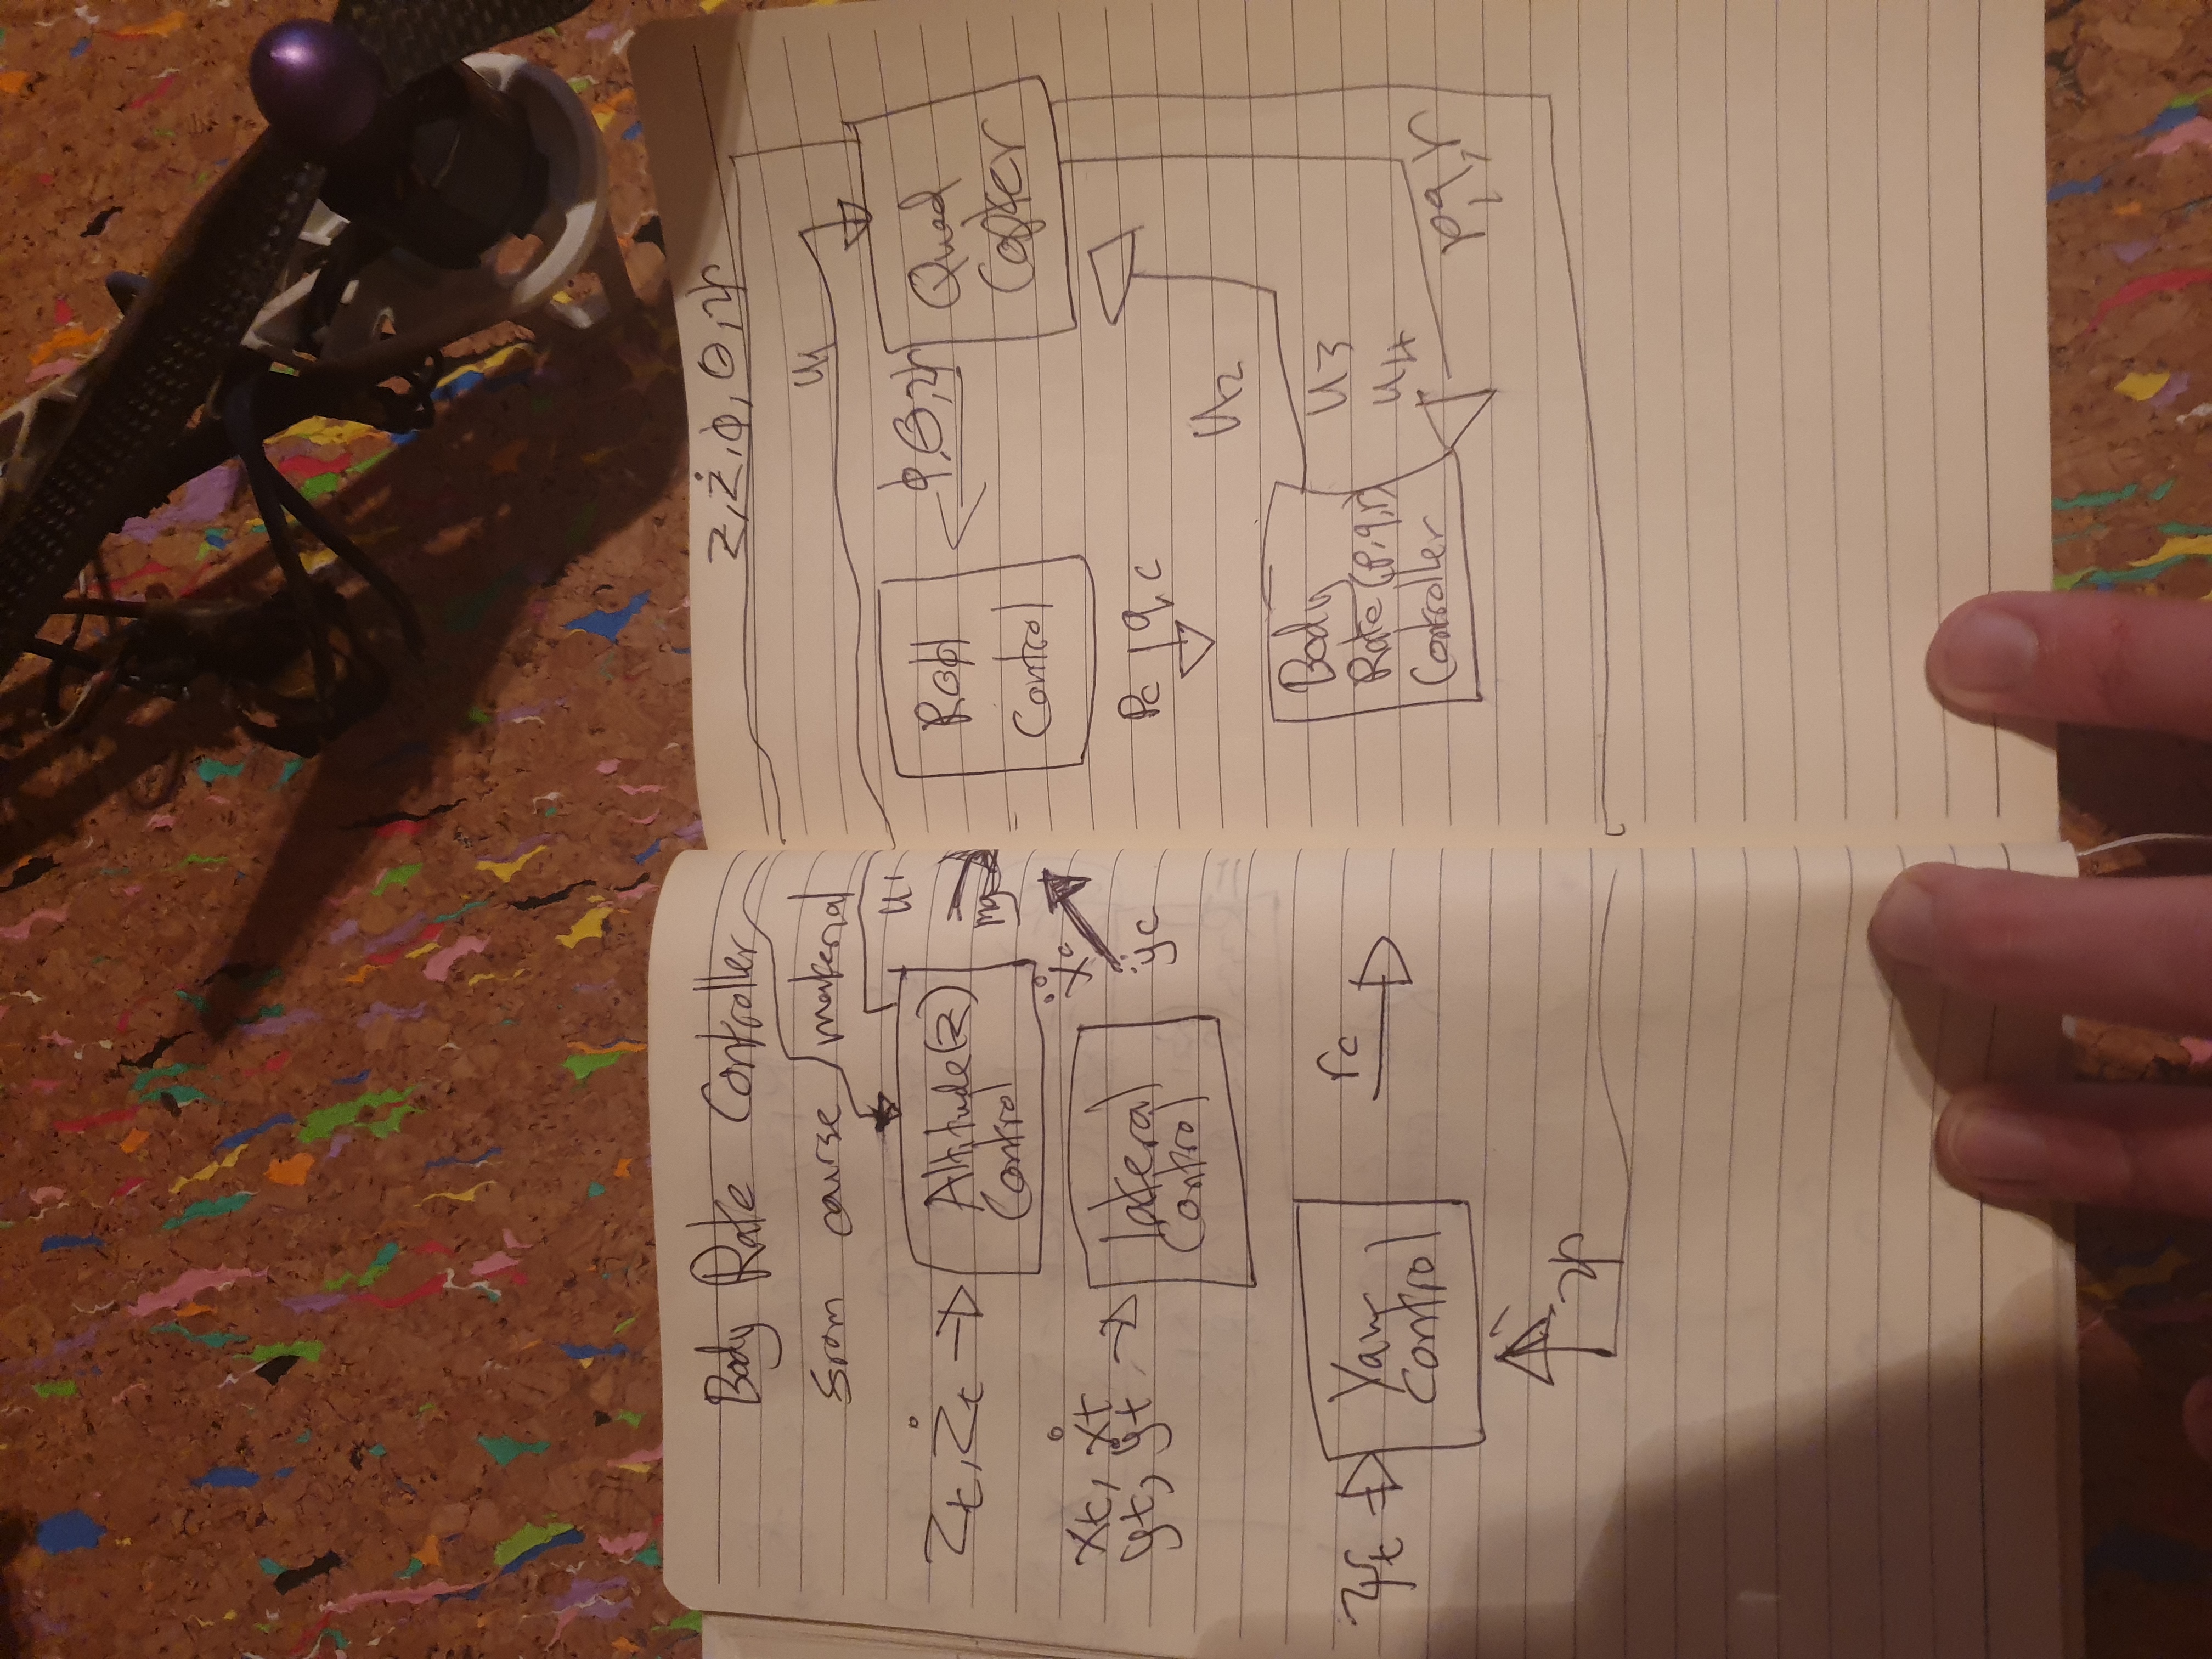 Body Rate Controller
from course material
u1
Zt, Żt
Altitude(z)
Control
mg
xt, ẋt
yt, ẏt
lateral
Control
ẍc
ÿc
ψt
Yaw
control
rc
ψ
z, ż, ϕ, θ, ψ
u1
Control
ϕ, θ, ψ
Quad
Copter
Pc q,c
u2
Body
Rate (p,q,r)
Controller
u3
u4
p,q,r